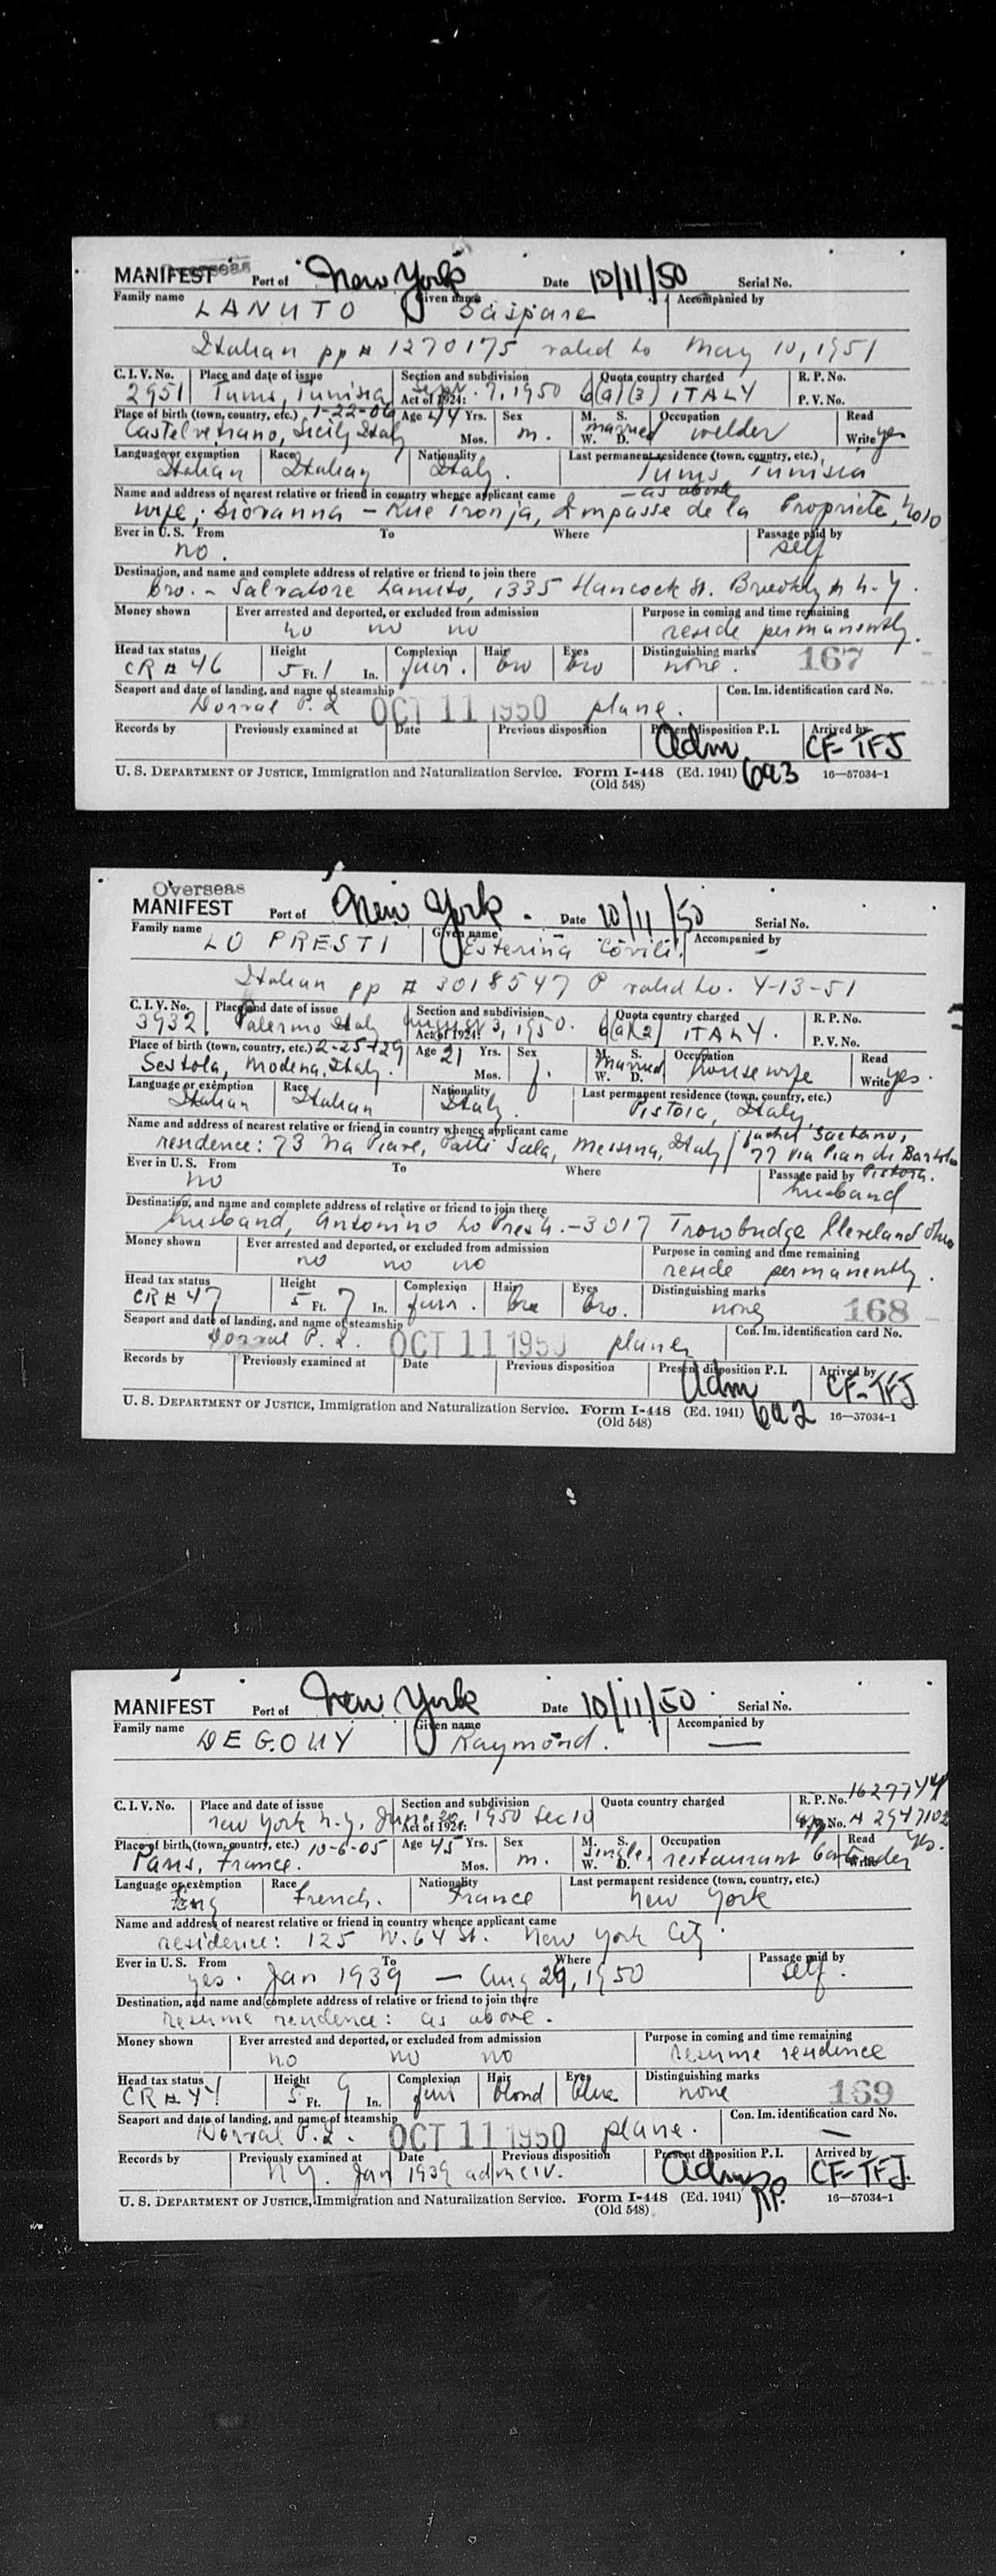 MANIFEST Overseas Port of New York Date 10/11/50 Serial No.
Family name LANUTO Given name Gaspare Accompanied by
Italian pp # 1270175 valid to May 10, 1951
C. I. V. No. Place and date of issue Section and subdivision Quota country charged R. P. No.
2951 Tunis, Tunisia Sept. 7, 1950 Act of 1924: 6(a)(3) ITALY P. V. No.
Place of birth (town, country, etc.) 1-22-06 Age 44 Yrs. Sex M. S. Occupation Read
Castelvetrano, Sicily Italy Mos. m. married W. D. welder Write yes
Language or exemption Race Nationality Last permanent residence (town, country, etc.)
Italian Italian Italy. Tunis Tunisia
Name and address of nearest relative or friend in country whence applicant came — as above
wife, Giovanna — Rue Tronja, Impasse de la Propriete,
Ever in U. S. From To Where Passage paid by
no. self
Destination, and name and complete address of relative or friend to join there
bro. - Salvatore Lanuto, 1335 Hancock St. Brooklyn N.Y.
Money shown Ever arrested and deported, or excluded from admission Purpose in coming and time remaining
no no no reside permanently.
Head tax status Height Complexion Hair Eyes Distinguishing marks
CR # 46 5 Ft. 1 In. fair. bro bro none. 167
Seaport and date of landing, and name of steamship Con. Im. identification card No.
Dorval P.Q. OCT 11 1950 plane.
Records by Previously examined at Date Previous disposition Present disposition P. I. Arrived by
Adm CF-TFJ
U. S. DEPARTMENT OF JUSTICE, Immigration and Naturalization Service. Form I-448 (Ed. 1941) 6a3 16—57034-1
(Old 548)
Overseas
MANIFEST Port of New York. Date 10/11/50 Serial No.
Family name LO PRESTI Given name Esterina Covili. Accompanied by —
Italian pp # 3018547 P valid to. 4-13-51
C. I. V. No. Place and date of issue Section and subdivision Quota country charged R. P. No.
3932 Palermo Italy August 3, 1950. Act of 1924: 6(a)(2) ITALY. P. V. No.
Place of birth (town, country, etc.) 2-25-29 Age 21 Yrs. Sex M. S. Occupation Read
Sestola, Modena, Italy. Mos. f. Married W. D. housewife Write yes.
Language or exemption Race Nationality Last permanent residence (town, country, etc.)
Italian Italian Italy. Pistoia, Italy
Name and address of nearest relative or friend in country whence applicant came Gaetano,
residence: 73 Via Piave, Patti Messina, Italy / 77 Via Pian di
Ever in U. S. From To Where Passage paid by Pistoia.
no husband
Destination, and name and complete address of relative or friend to join there
husband, Antonino Lo Presti. - 3017 Trowbridge Cleveland Ohio
Money shown Ever arrested and deported, or excluded from admission Purpose in coming and time remaining
no no no reside permanently.
Head tax status Height Complexion Hair Eyes Distinguishing marks
CR # 47 5 Ft. 7 In. fair. bro bro. none 168
Seaport and date of landing, and name of steamship Con. Im. identification card No.
Dorval P.Q. OCT 11 1950 plane
Records by Previously examined at Date Previous disposition Present disposition P. I. Arrived by
Adm CF-TFJ
U. S. DEPARTMENT OF JUSTICE, Immigration and Naturalization Service. Form I-448 (Ed. 1941) 6a2 16—57034-1
(Old 548)
MANIFEST Port of New York Date 10/11/50 Serial No.
Family name DEGOUY Given name Raymond. Accompanied by —
C. I. V. No. Place and date of issue Section and subdivision Quota country charged R. P. No. 1627744
New York N.Y. June 20, 1950 Act of 1924: Sec 10 P. V. No. A 2947102
Place of birth (town, country, etc.) 10-6-05 Age 45 Yrs. Sex M. S. Occupation Read Yes.
Paris, France. Mos. m. Single W. D. restaurant bartender Write
Language or exemption Race Nationality Last permanent residence (town, country, etc.)
Eng French. France New York
Name and address of nearest relative or friend in country whence applicant came
residence: 125 W. 64 St. New York City.
Ever in U. S. From To Where Passage paid by
yes. Jan 1939 — Aug 29, 1950 self.
Destination, and name and complete address of relative or friend to join there
resume residence: as above.
Money shown Ever arrested and deported, or excluded from admission Purpose in coming and time remaining
no no no resume residence
Head tax status Height Complexion Hair Eyes Distinguishing marks
CR # 44 5 Ft. 9 In. fair blond blue none 169
Seaport and date of landing, and name of steamship Con. Im. identification card No.
Dorval P.Q. OCT 11 1950 plane. —
Records by Previously examined at Date Previous disposition Present disposition P. I. Arrived by
N.Y. Jan 1939 adm CIV. Adm CF-TFJ.
U. S. DEPARTMENT OF JUSTICE, Immigration and Naturalization Service. Form I-448 (Ed. 1941) RP. 16—57034-1
(Old 548)